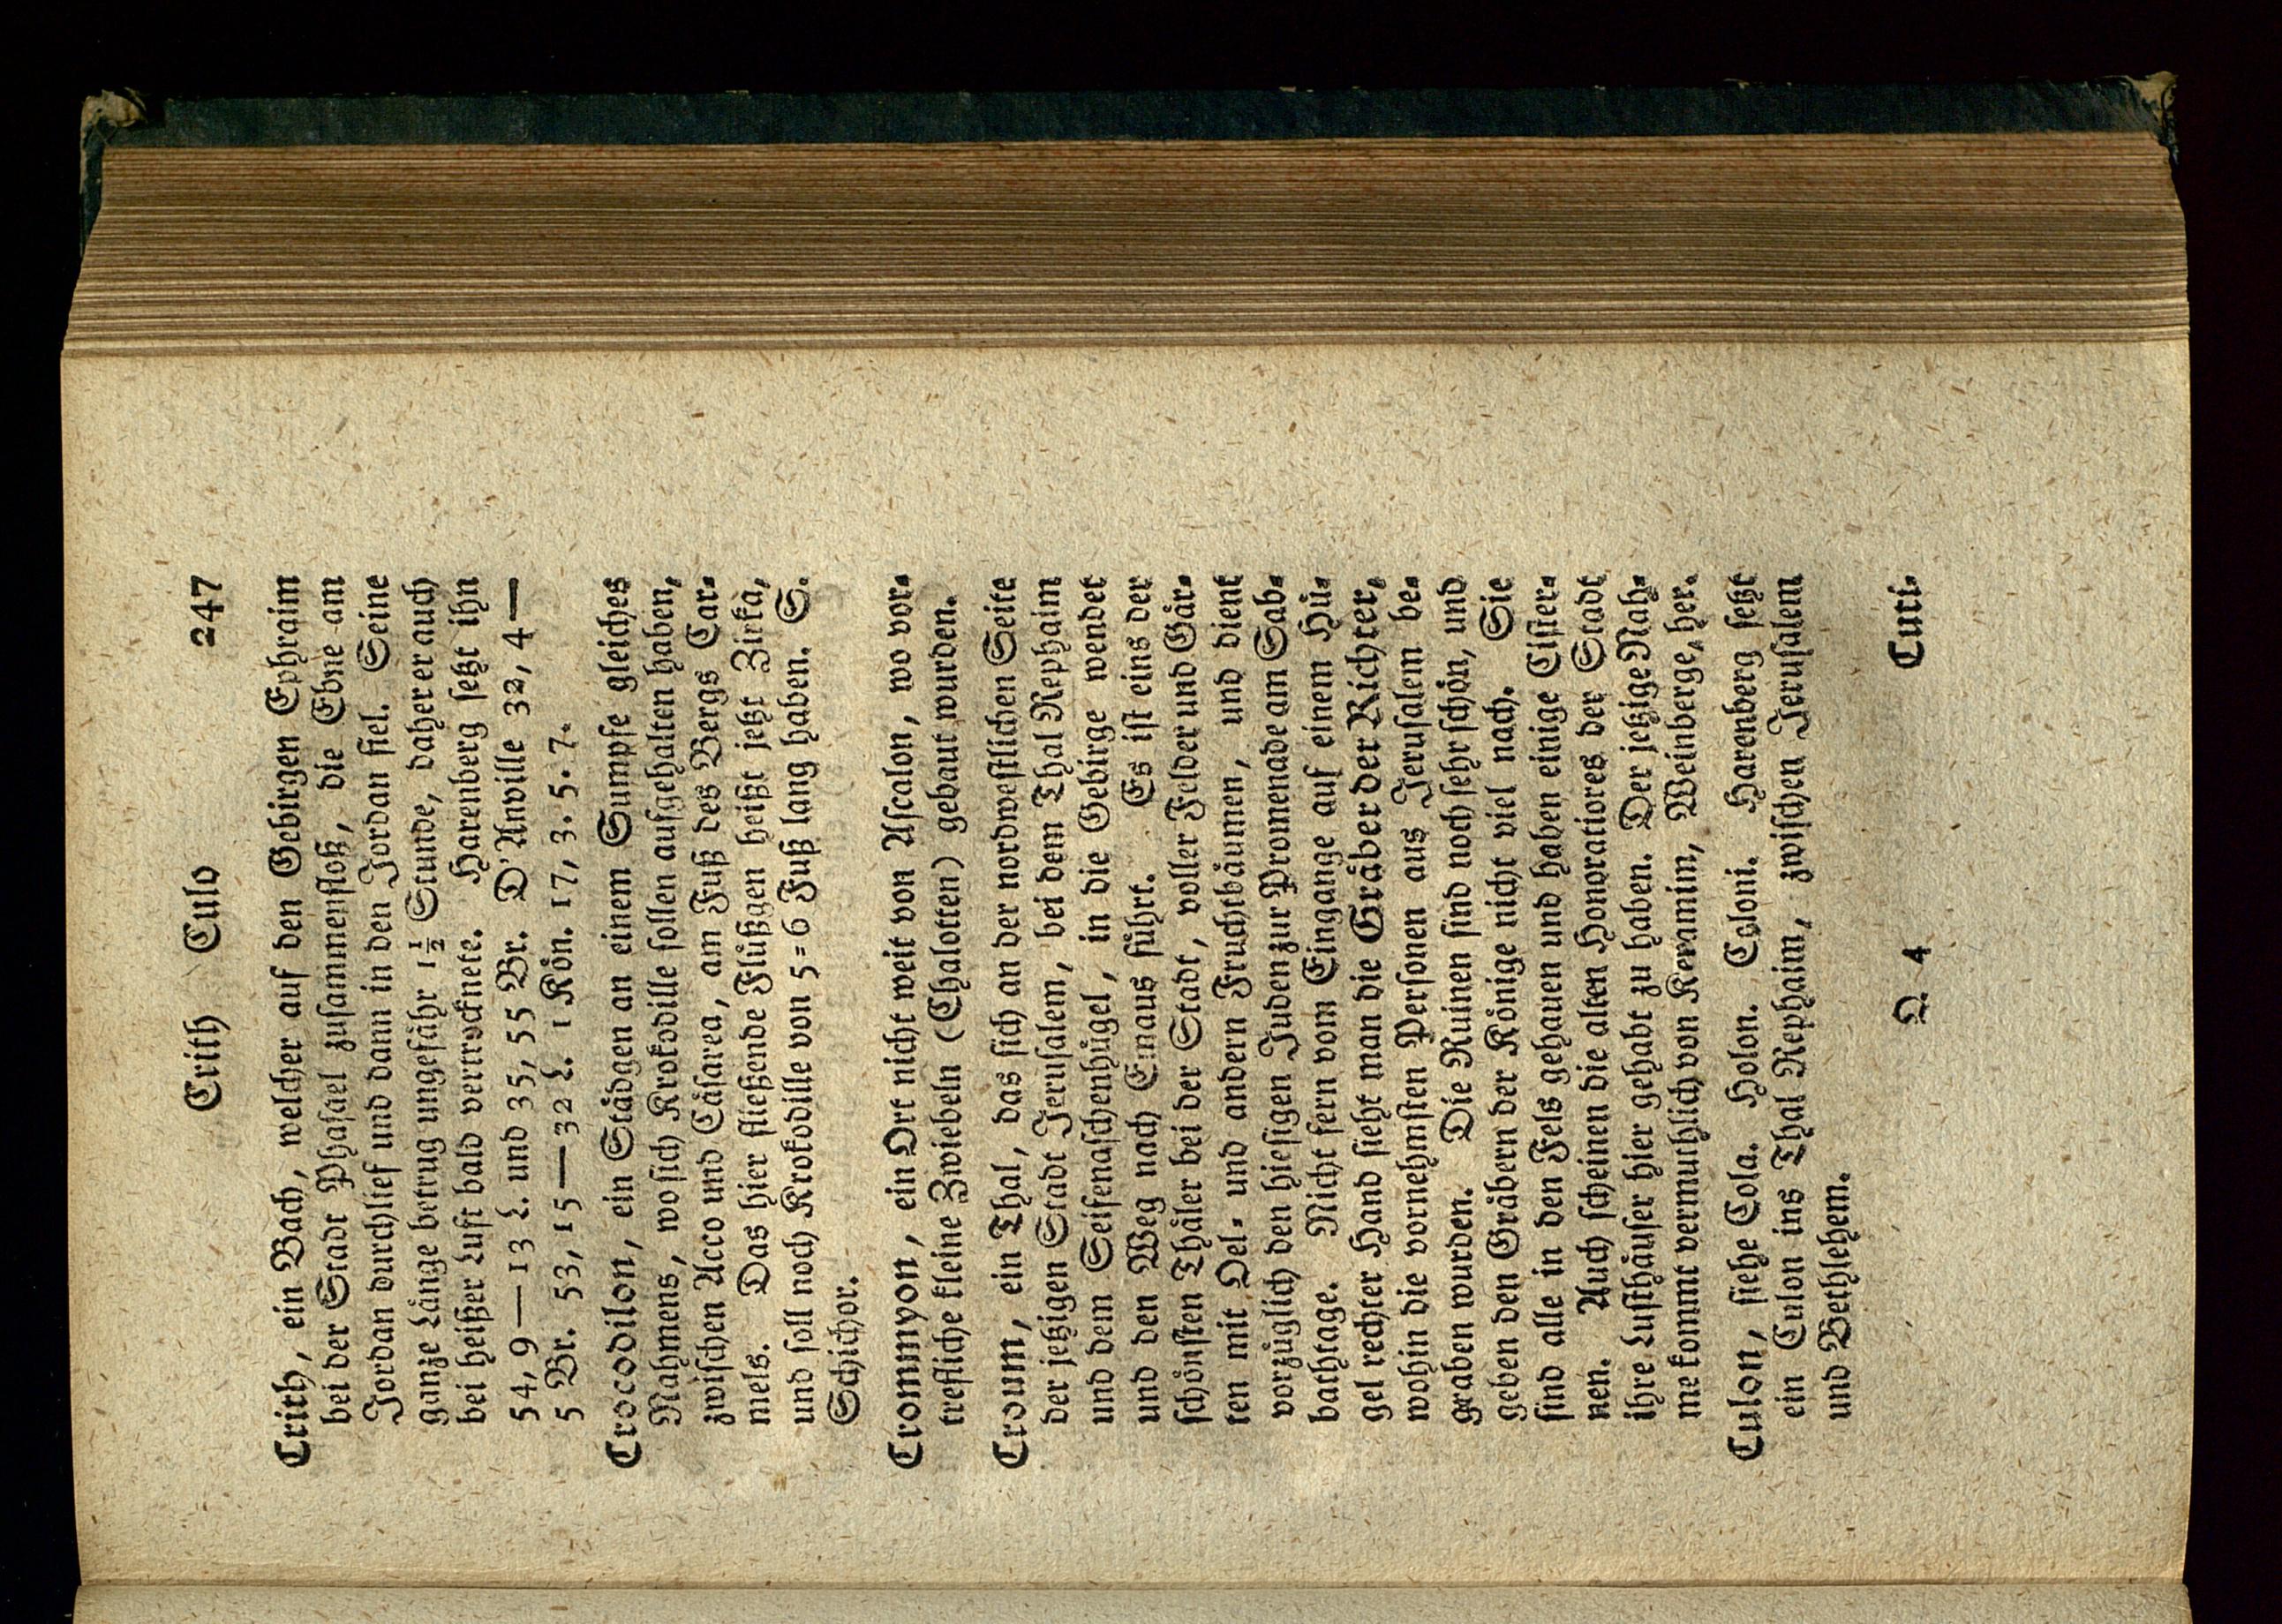 Crith Culo 247
Crith, ein Bach, welcher auf den Gebirgen Ephraim
bei der Stadt Phasael zusammenfloß, die Ebne am
Jordan durchlief und dann in den Jordan fiel. Seine
ganze Länge betrug ungefähr 1½ Stunde, daher er auch
bei heißer Luft bald vertrocknete. Harenberg setzt ihn
54, 9 — 13 L. und 35, 55 Br. D'Anville 32, 4 —
5 Br. 53, 15 — 32 L. 1 Kön. 17, 3. 5. 7.
Crocodilon, ein Städgen an einem Sumpfe gleiches
Nahmens, wo sich Krokodille sollen aufgehalten haben,
zwischen Acco und Cäsarea, am Fuß des Bergs Car-
mels. Das hier fließende Flüßgen heißt jetzt Zirka,
und soll noch Krokodille von 5=6 Fuß lang haben. S.
Schichor.
Crommyon, ein Ort nicht weit von Ascalon, wo vor-
trefliche kleine Zwiebeln (Chalotten) gebaut wurden.
Croum, ein Thal, das sich an der nordwestlichen Seite
der jetzigen Stadt Jerusalem, bei dem Thal Rephaim
und dem Seifenaschenhügel, in die Gebirge wendet
und den Weg nach Emaus führt. Es ist eins der
schönsten Thäler bei der Stadt, voller Felder und Gär-
ten mit Oel- und andern Fruchtbäumen, und dient
vorzüglich den hiesigen Juden zur Promenade am Sab-
bathtage. Nicht fern vom Eingange auf einem Hü-
gel rechter Hand sieht man die Gräber der Richter,
wohin die vornehmsten Personen aus Jerusalem be-
graben wurden. Die Ruinen sind noch sehr schön, und
geben den Gräbern der Könige nicht viel nach. Sie
sind alle in den Fels gehauen und haben einige Cister-
nen. Auch scheinen die alten Honoratiores der Stadt
ihre Lusthäuser hier gehabt zu haben. Der jetzige Nah-
me kommt vermuthlich von Keramim, Weinberge, her.
Culon, siehe Cola. Holon. Coloni. Harenberg setzt
ein Culon ins Thal Rephaim, zwischen Jerusalem
und Bethlehem.
Q 4 Curi-